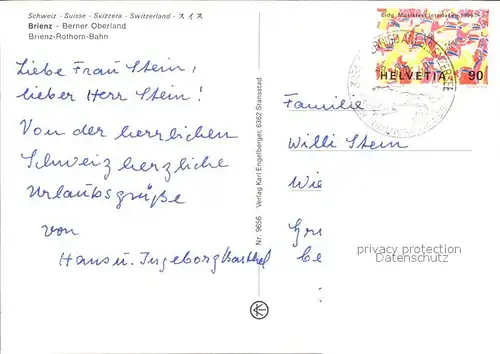 Schweiz · Suisse · Svizzera · Switzerland · スイス
Brienz · Berner Oberland
Brienz-Rothorn-Bahn
Liebe Frau Stein,
lieber Herr Stein!
Von der herrlichen
Schweiz herzliche
Urlaubsgrüße
von
Hans u. Ingeborg
Nr. 9656 Verlag Karl Engelberger, 6362 Stansstad
Eidg. Musikfest Interlaken 1996
HELVETIA 90
Familie
Willi Stein
Wie
Gru
be
privacy protection
Datenschutz